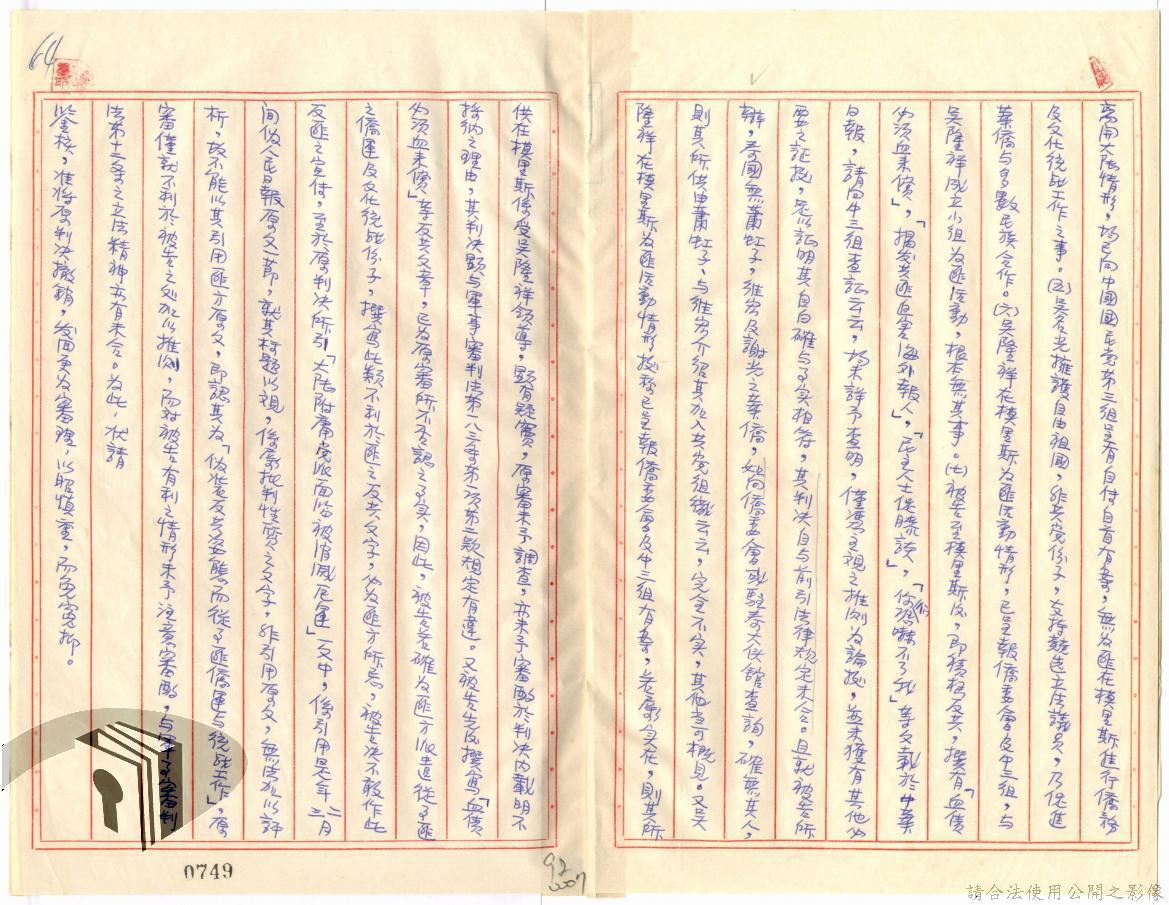 離開大陸情形，均已向中國國民黨第三組呈有自付自首有案，無為匪在模里斯進行僑務
及文化統戰工作之事。(五)吳春光擁護自由祖國，非共黨份子，支持競選立法議員，乃促進
華僑與多數民族合作。(六)吳隆祥在模里斯為匪活動情形，已呈報僑委會及中三組，與
吳隆祥成立小組為匪活動，根本無其事。(七)被告至模里斯後，即積極反共，撰有「血債
必須血來償」，「揭發共匪迫害海外報人」，「民主人士促膝談」，「你們恐嚇不了我」等文載於中華
日報，請向中三組查証云云，均未詳予查明，僅憑主觀之推測為論據，並未獲有其他必
要之証據，足以証明其自白確與事實相符，其判決自與前引法律規定未合。且就被告所
辯，泰國無蕭虹子，維岩及謝光之華僑，如向僑委會或駐泰大使館查詢，確無其人，
則其所供由蕭虹子、與維岩介紹其加入共黨組織云云，完全不實，其他查可概見。又吳
隆祥在模里斯為匪活動情形據稱已呈報僑委會及中三組有案，若屬實在，則其所
供在模里斯係受吳隆祥領導，顯有疑竇，原審未予調查，亦未予審酌於判決內載明不
採納之理由，其判決顯與軍事審判法第一八三條第一項第二款規定有違。又被告先後撰寫「血債
必須血來償」等反共文章，已為原審所不否認之事實，因此，被告若確為匪方派遣從事匪
之僑運及文化統戰份子，撰寫此類不利於匪之反共文字，必為匪方所忌，被告決不敢作此
反匪之宣付，至於原判決所引「大陸附庸黨派面臨被消滅厄運」一文中，係引用是年二三月
間偽人民日報原文一節，就其標題以視，係屬批判性質之文字，非引用原文，無法加以評
析，故不能以其引用匪方原文，即認其為「偽裝反共姿態而從事匪僑運與統戰工作」，原
審僅就不利於被告之處加以推測，而對被告有利之情形未予注意審酌，與軍事審判
法第十二條之立法精神亦有未合。為此，狀請
鑒核，准將原判決撤銷，發回更為審理，以昭慎重，而免冤抑。
64
0749
92
請合法使用公開之影像